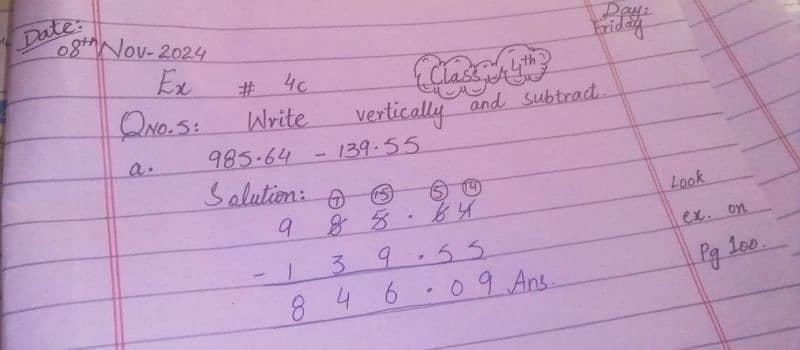 Date:
08th Nov-2024
Day:
Friday
Ex # 4c
Class 4th
Qno.5: Write vertically and subtract.
a. 985.64 - 139.55
Solution: 7 15 5 14
9 8 5 . 6 4
- 1 3 9 . 5 5
8 4 6 . 0 9 Ans.
Look
ex. on
Pg 100.